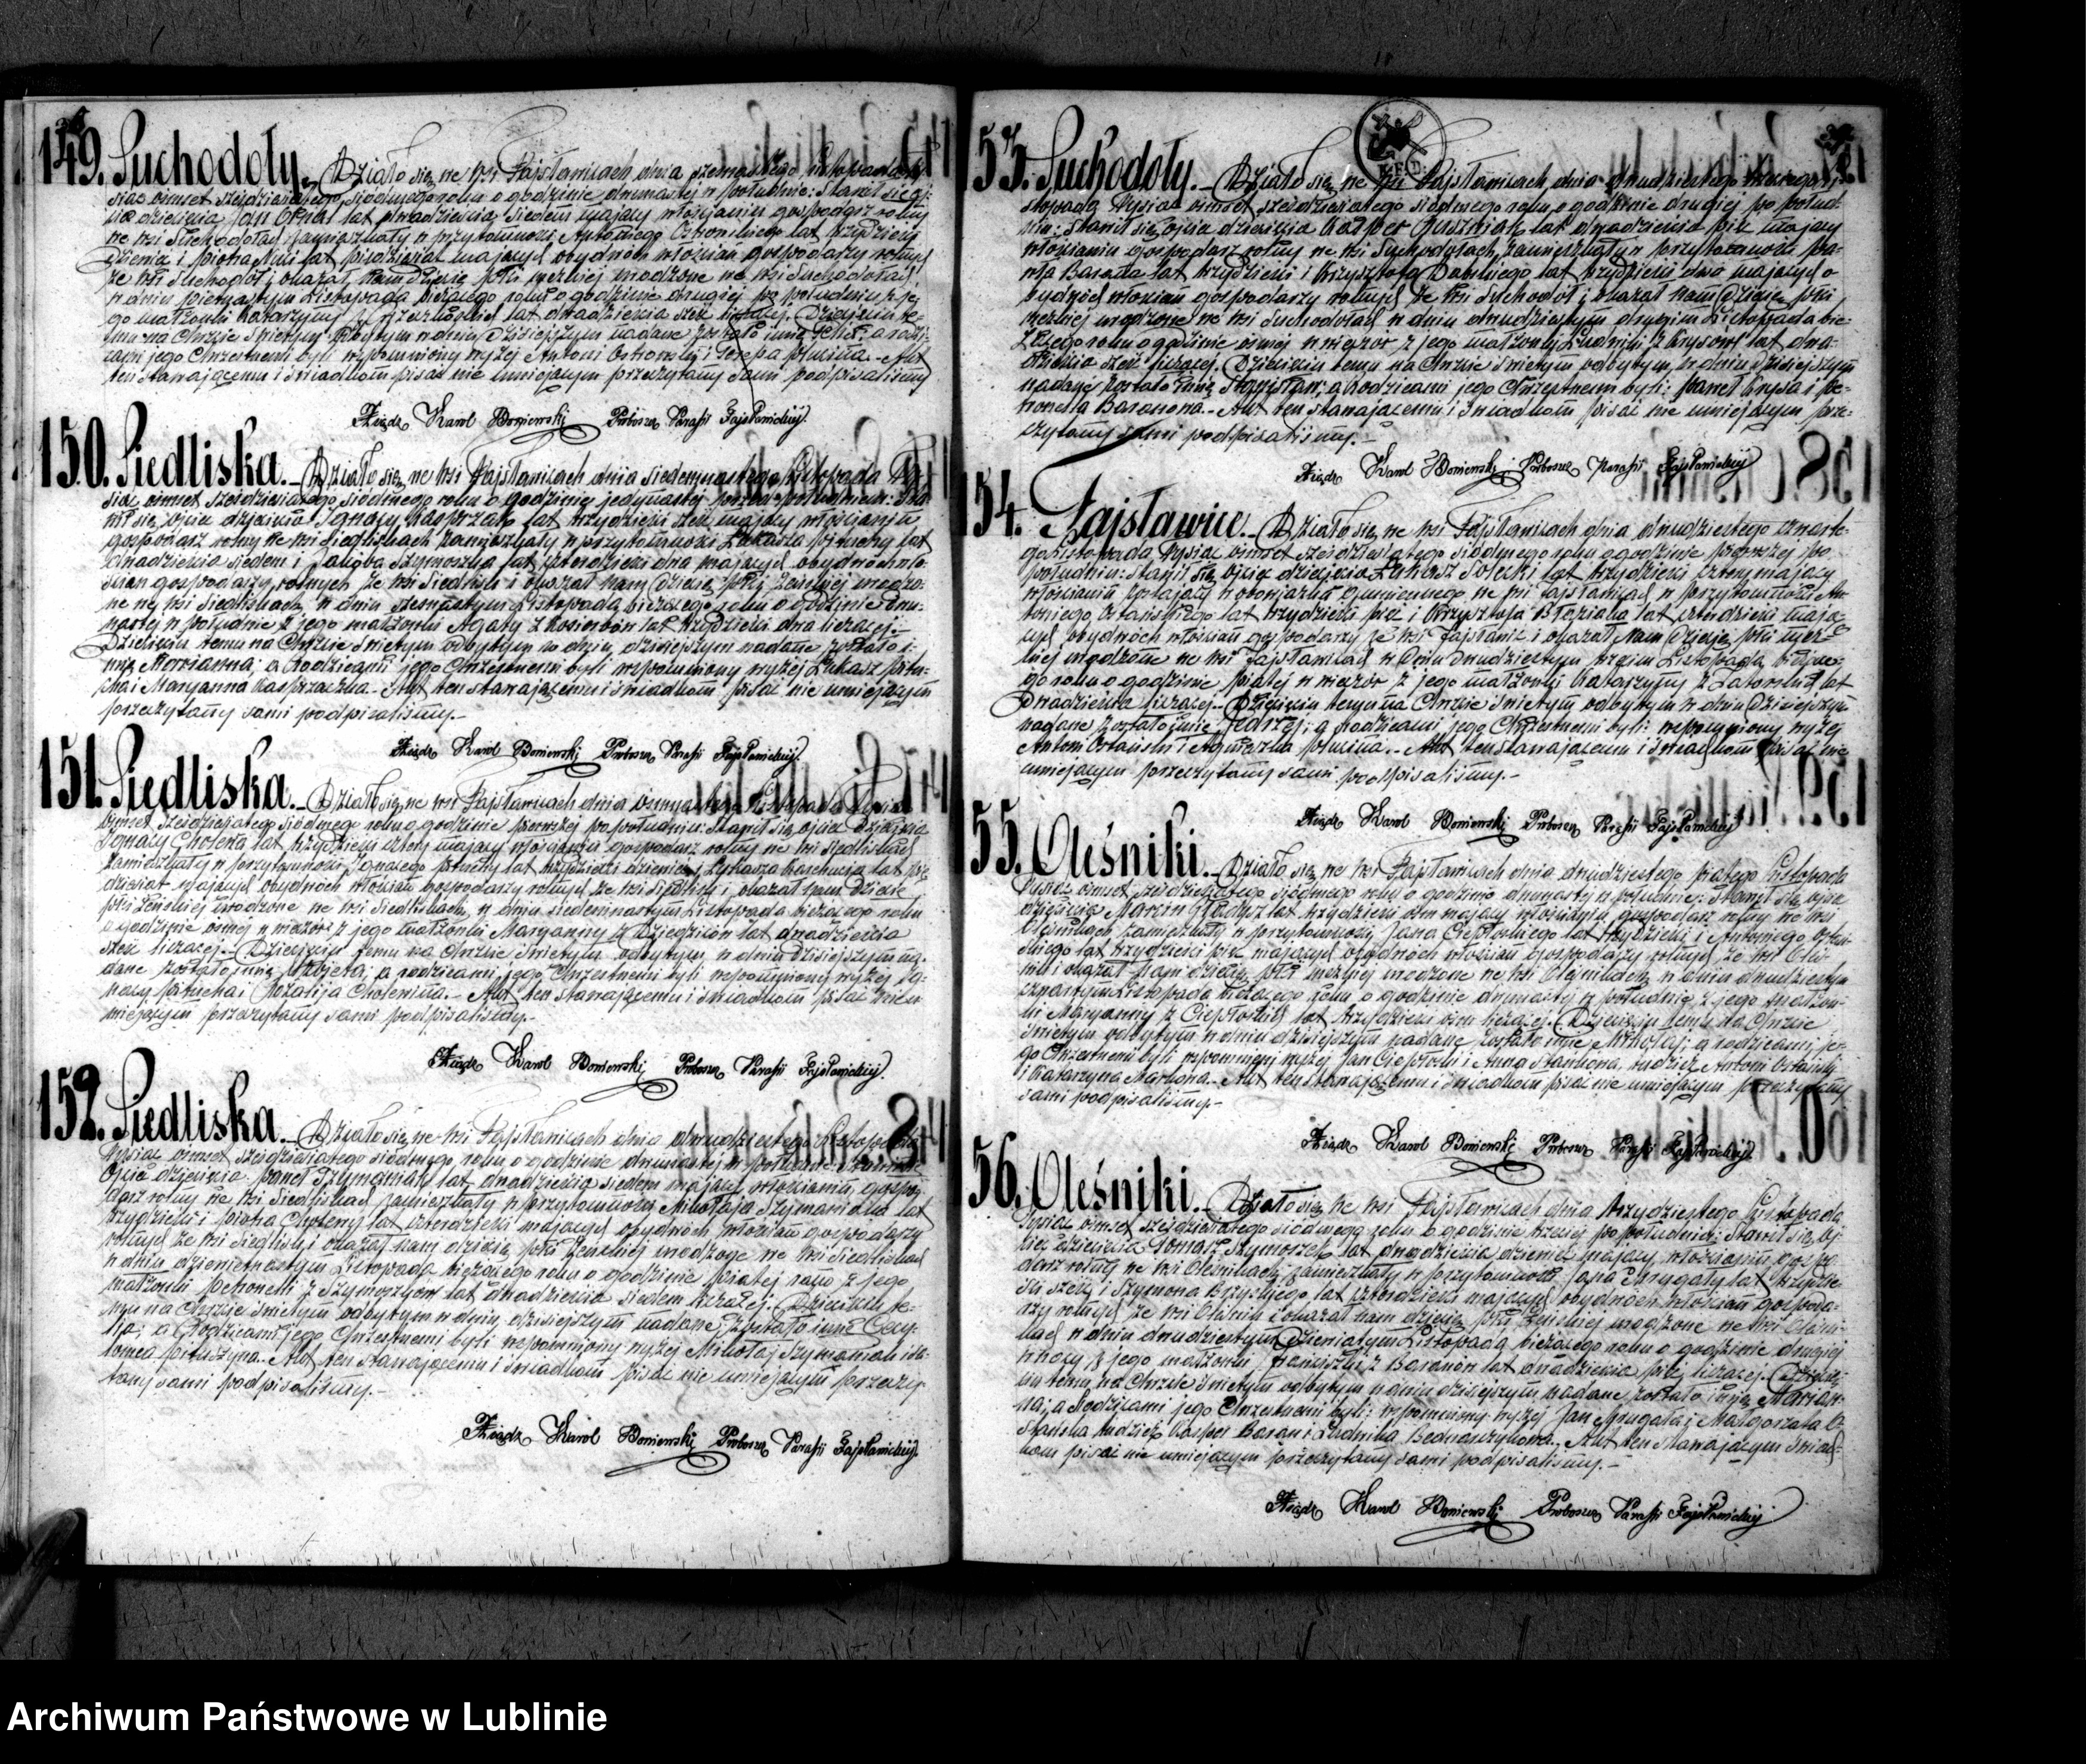 149. Suchodoły. Działo się we wsi Fajsławicach dnia szesnastego Listopada
siąc ośmset sześćdziesiątego siódmego roku o godzinie dwunastej w południe. Stawił się oj-
ciec dziecięcia Jan lat dwadzieścia siedem mający włościanin gospodarz rolny
we wsi Suchodołach zamieszkały w przytomności Antoniego Ostrowskiego lat trzydzieści
i Piotra lat pięćdziesiąt mających obydwóch włościan gospodarzy rolnych
ze wsi Suchodoły i okazał Nam Dziecię płci męzkiej urodzone we wsi Suchodołach
w dniu Listopada bieżącego roku o godzinie drugiej po południu z je-
go małżonki Katarzyny lat dwadzieścia sześć Dziecięciu te-
mu na Chrzcie Świętym odbytym w dniu dzisiejszym nadane zostało imię a rodzi-
cami jego Chrzestnemi byli wspomniony wyżej Antoni Ostrowski i Akt
ten stawającemu i świadkom pisać nie umiejącym przeczytany sami podpisaliśmy
Ksiądz Karol Boniewski Proboszcz Parafii Fajsławickiej.
150. Siedliska. Działo się we wsi Fajsławicach dnia siedemnastego Listopada Ty-
siąc ośmset sześćdziesiątego siódmego roku o godzinie jedynastej przed południem: Sta-
wił się ojciec dziecięcia Ignacy Kasprzak lat trzydzieści sześć mający włościanin
gospodarz rolny we wsi Siedliskach zamieszkały w przytomności Łukasza Pituchy lat
dwadzieścia siedem i Jakóba Szymoszka lat czterdzieści dwa mających obydwóch wło-
ścian gospodarzy rolnych ze wsi Siedlisk i okazał Nam Dziecię płci Żeńskiej urodzo-
ne we wsi Siedliskach w dniu szesnastym Listopada bieżącego roku o godzinie dwu-
nastej w południe z jego małżonki Agaty z lat trzydzieści dwa liczącej.
Dziecięciu temu na Chrzcie Świętym odbytym w dniu dzisiejszym nadane zostało i-
mię Maryanna; a Rodzicami jego Chrzestnemi byli wspomniony wyżej Łukasz Pitu-
cha i Maryanna Kasprzaczka. Akt ten stawającemu i świadkom pisać nie umiejącym
przeczytany sami podpisaliśmy.
Ksiądz Karol Boniewski Proboszcz Parafii Fajsławickiej.
151. Siedliska. Działo się we wsi Fajsławicach dnia ośmnastego Listopada Tysiąc
ośmset sześćdziesiątego siódmego roku o godzinie pierwszej po południu: Stawił się ojciec dziecięcia
Ignacy Cholewa lat trzydzieści cztery mający włościanin gospodarz rolny we wsi Siedliskach
zamieszkały w przytomności Ignacego Pituchy lat trzydzieści dziewięć i Łukasza lat pięć-
dziesiąt mających obydwóch włościan gospodarzy rolnych ze wsi Siedlisk i okazał Nam Dziecię
płci Żeńskiej urodzone we wsi Siedliskach w dniu siedemnastym Listopada bieżącego roku
o godzinie ósmej w wieczór z jego małżonki Maryanny z Dziedziców lat dwadzieścia
sześć liczącej. Dziecięciu temu na Chrzcie Świętym odbytym w dniu dzisiejszym na-
dane zostało imię Elżbieta; a rodzicami jego Chrzestnemi byli wspomniony wyżej Ig-
nacy Pitucha i Rozalija Cholewina. Akt ten stawającemu i świadkom pisać nieu-
miejącym przeczytany sami podpisaliśmy.
Ksiądz Karol Boniewski Proboszcz Parafii Fajsławickiej.
152. Siedliska. Działo się we wsi Fajsławicach dnia dwudziestego Listopada
Tysiąc ośmset sześćdziesiątego siódmego roku o godzinie dwunastej w południe. Stawił się
Ojciec dziecięcia Paweł Szymaniak lat dwadzieścia siedem mający włościanin gospo-
darz rolny we wsi Siedliskach zamieszkały w przytomności Mikołaja Szymaniaka lat
trzydzieści i Piotra Cholewy lat czterdzieści mających obydwóch włościan gospodarzy
rolnych ze wsi Siedlisk i okazał Nam dziecię płci Żeńskiej urodzone we wsi Siedliskach
w dniu dziewiętnastym Listopada bieżącego roku o godzinie piątej rano z jego
małżonki Petroneli z Szymoszków lat dwadzieścia siedem liczącej. Dziecięciu te-
mu na Chrzcie Świętym odbytym w dniu dzisiejszym nadane zostało imię Cecy-
lia; a Rodzicami jego Chrzestnemi byli wspomniony wyżej Mikołaj Szymaniak i
Akt ten stawającemu i świadkom pisać nie umiejącym przeczy-
tany sami podpisaliśmy.
Ksiądz Karol Boniewski Proboszcz Parafii Fajsławickiej.
Suchodoły. Działo się we wsi Fajsławicach, dnia dwudziestego Li-
stopada Tysiąc ośmset sześćdziesiątego siódmego roku, o godzinie drugiej po połud-
niu: Stawił się ojciec dziecięcia Kacper lat dwadzieścia pięć mający
włościanin Gospodarz rolny we wsi Suchodołach zamieszkały w przytomności Pa-
wła Barana lat trzydzieści i Krzysztofa lat trzydzieści dwa mających o-
bydwóch włościan gospodarzy rolnych ze wsi Suchodoły i okazał Nam Dziecię płci
męzkiej urodzone we wsi Suchodołach w dniu dwudziestym drugim Listopada bie-
żącego roku o godzinie ósmej w wieczór z jego małżonki Ludwiki z Krysów lat dwa-
dzieścia sześć liczącej. Dziecięciu temu na Chrzcie Świętym odbytym w dniu dzisiejszym
nadane zostało imię Stanisław; a Rodzicami jego Chrzestnemi byli: Paweł Krysa i Pe-
tronella Baranowa. Akt ten stawającemu i świadkom pisać nie umiejącym prze-
czytany sami podpisaliśmy.
Ksiądz Karol Boniewski Proboszcz Parafii Fajsławickiej
154. Fajsławice. Działo się we wsi Fajsławicach dnia dwudziestego czwarte-
go Listopada Tysiąc ośmset sześćdziesiątego siódmego roku o godzinie pierwszej po
południu: Stawił się ojciec dziecięcia Łukasz Solecki lat trzydzieści cztery mający
włościanin zostający w obowiązku gumiennego we wsi Fajsławicach w przytomności An-
toniego Ostańskiego lat trzydzieści pięć i Krzysztofa Błaziaka lat czterdzieści mają-
cych obydwóch włościan gospodarzy ze wsi Fajsławic i okazał Nam Dziecię płci męz-
kiej urodzone we wsi Fajsławicach w dniu dwudziestym trzecim Listopada bieżące-
go roku o godzinie piątej w wieczór z jego małżonki Katarzyny z lat
Dwadzieścia liczącej. Dziecięciu temu na Chrzcie Świętym odbytym w dniu dzisiejszym
nadane zostało imię Jędrzej; a rodzicami jego Chrzestnemi byli: wspomniony wyżej
Antoni Ostański i Agnieszka Akt ten stawającemu i świadkom pisać nie
umiejącym przeczytany sami podpisaliśmy.
Ksiądz Karol Boniewski Proboszcz Parafii Fajsławickiej
55. Oleśniki. Działo się we wsi Fajsławicach dnia dwudziestego piątego Listopada
Tysiąc ośmset sześćdziesiątego siódmego roku o godzinie dwunastej w południe: Stawił się ojciec
dziecięcia Marcin lat trzydzieści mający włościanin gospodarz rolny we wsi
Oleśnikach zamieszkały w przytomności Jana Ciepłoskiego lat trzydzieści i Antoniego Ostań-
skiego lat trzydzieści pięć mających obydwóch włościan gospodarzy rolnych ze wsi Oleś-
nik i okazał Nam dziecię płci męzkiej urodzone we wsi Oleśnikach w dniu dwudziestym
czwartym Listopada bieżącego roku o godzinie dwunastej w południe z jego małżon-
ki Maryanny z Ciepłoskich lat trzydzieści ośm liczącej. Dziecięciu temu na Chrzcie
Świętym odbytym w dniu dzisiejszym nadane zostało imię Mikołaj; a rodzicami je-
go Chrzestnemi byli wspomniony wyżej Jan Ciepłoski i Anna tudzież Antoni Ostański
i Katarzyna Akt ten stawającemu i świadkom pisać nie umiejącym przeczytany
sami podpisaliśmy.
Ksiądz Karol Boniewski Proboszcz Parafii Fajsławickiej
56. Oleśniki. Działo się we wsi Fajsławicach dnia trzydziestego Listopada
Tysiąc ośmset sześćdziesiątego siódmego roku o godzinie trzeciej po południu: Stawił się oj-
ciec dziecięcia Tomasz Szymoszek lat dwadzieścia dziewięć mający, włościanin gospo-
darz rolny we wsi Oleśnikach zamieszkały w przytomności Jana lat trzydzie-
ści sześć i Szymona lat czterdzieści mających obydwóch włościan gospoda-
rzy rolnych ze wsi Oleśnik i okazał nam dziecię płci Żeńskiej urodzone we wsi Oleśni-
kach w dniu dwudziestym Dziewiątym Listopada bieżącego roku o godzinie drugiej
w nocy z jego małżonki Franciszki z Baranów lat dwadzieścia pięć liczącej. Dziecię-
ciu temu na Chrzcie Świętym odbytym w dniu dzisiejszym nadane zostało imię Maryan-
na; a Rodzicami jego Chrzestnemi byli: wspomniony wyżej Jan i Małgorzata
tudzież Kacper Baran i Ludwika Bednarczykowa. Akt ten stawającym świad-
kom pisać nie umiejącym przeczytany sami podpisaliśmy.
Ksiądz Karol Boniewski Proboszcz Parafii Fajsławickiej
Archiwum Państwowe w Lublinie